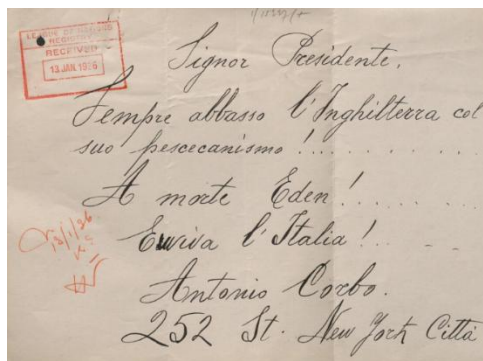 LEAGUE OF NATIONS
REGISTRY
RECEIVED
13 JAN. 1936
Signor Presidente.
Sempre abbasso l'Inghilterra col
suo pescecanismo!..........
A morte Eden!........
Evviva l'Italia!.....
Antonio Corbo.
252 St. New York Città
13/1/36